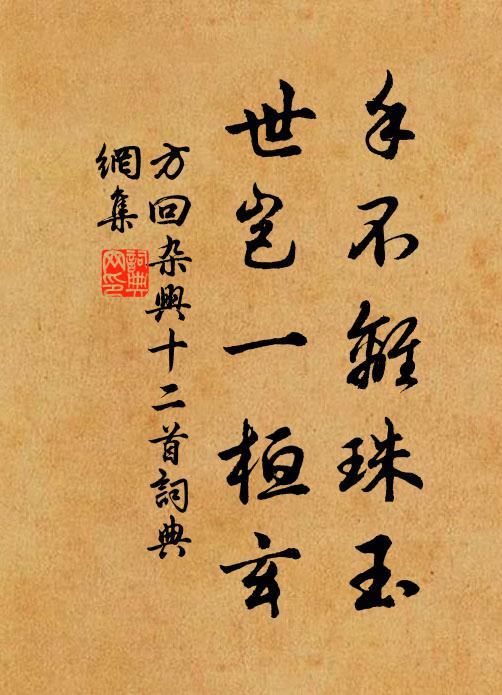 手不離珠玉
世豈一桓玄
方回杂興十二首詞典
網集
詞典
网印